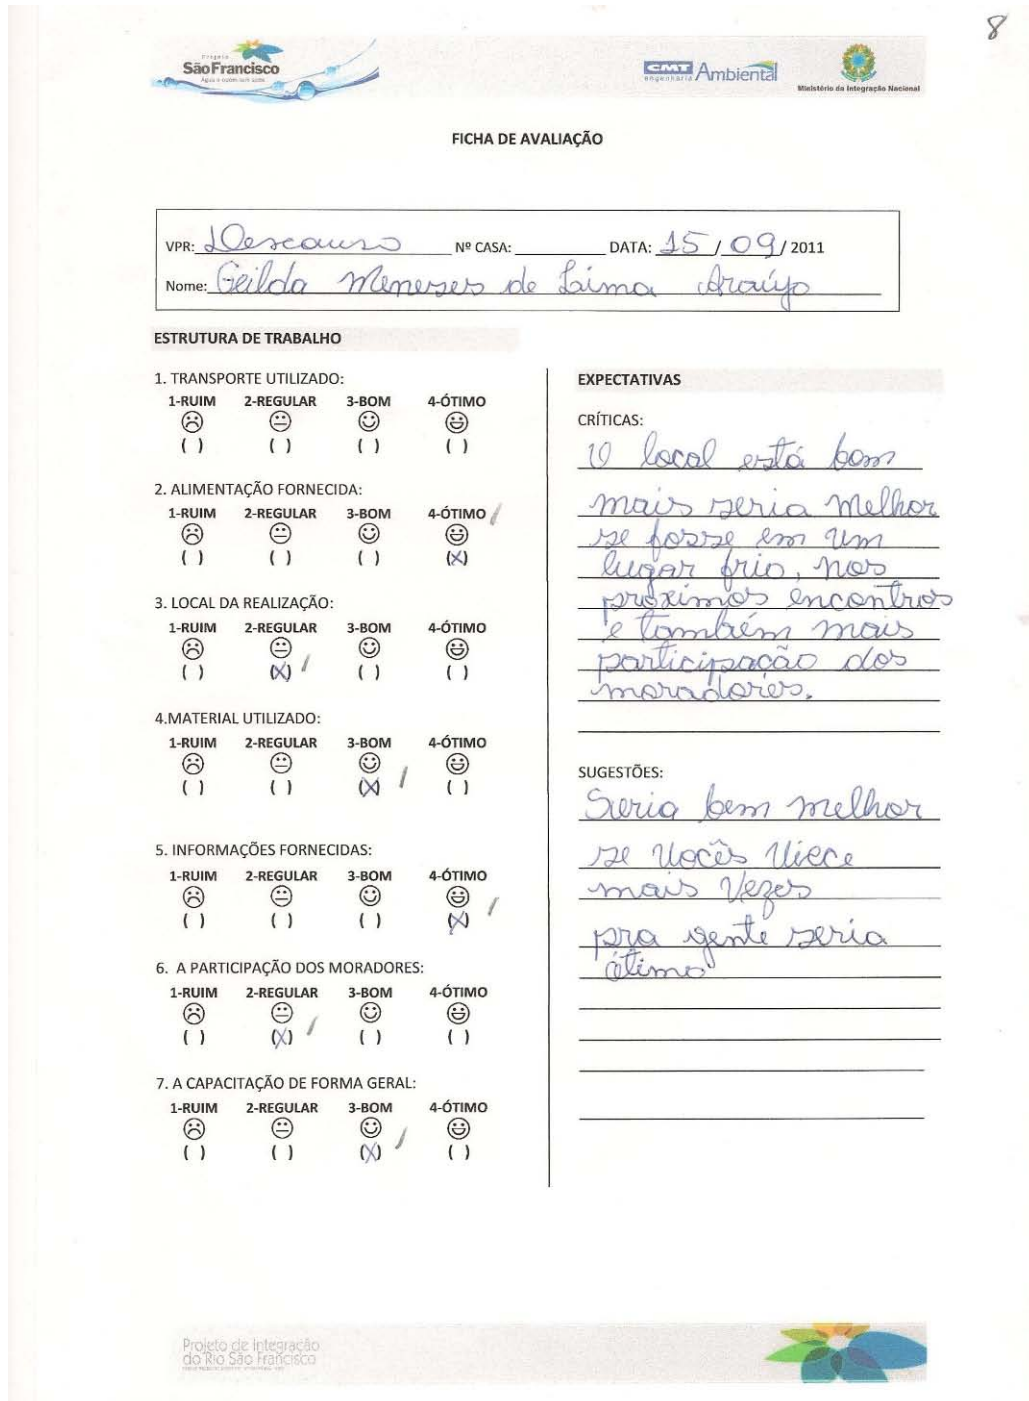 8
Projeto
São Francisco
Água a quem tem sede
CMT Ambiental
engenharia
Ministério da Integração Nacional
FICHA DE AVALIAÇÃO
VPR: Descanso Nº CASA: DATA: 15/09/2011
Nome: Geilda Meneses de Laima Araújo
ESTRUTURA DE TRABALHO
1. TRANSPORTE UTILIZADO:
1-RUIM 2-REGULAR 3-BOM 4-ÓTIMO
( ) ( ) ( ) ( )
2. ALIMENTAÇÃO FORNECIDA:
1-RUIM 2-REGULAR 3-BOM 4-ÓTIMO
( ) ( ) ( ) (x)
3. LOCAL DA REALIZAÇÃO:
1-RUIM 2-REGULAR 3-BOM 4-ÓTIMO
( ) (x) ( ) ( )
4.MATERIAL UTILIZADO:
1-RUIM 2-REGULAR 3-BOM 4-ÓTIMO
( ) ( ) (x) ( )
5. INFORMAÇÕES FORNECIDAS:
1-RUIM 2-REGULAR 3-BOM 4-ÓTIMO
( ) ( ) ( ) (x)
6. A PARTICIPAÇÃO DOS MORADORES:
1-RUIM 2-REGULAR 3-BOM 4-ÓTIMO
( ) (x) ( ) ( )
7. A CAPACITAÇÃO DE FORMA GERAL:
1-RUIM 2-REGULAR 3-BOM 4-ÓTIMO
( ) ( ) (x) ( )
EXPECTATIVAS
CRÍTICAS:
O local está bom
mais seria melhor
se fosse em um
lugar frio, nos
próximos encontros
e também mais
participação dos
moradores.
SUGESTÕES:
Seria bem melhor
se vocês viece
mais vezes
pra gente seria
ótimo
Projeto de Integração
do Rio São Francisco